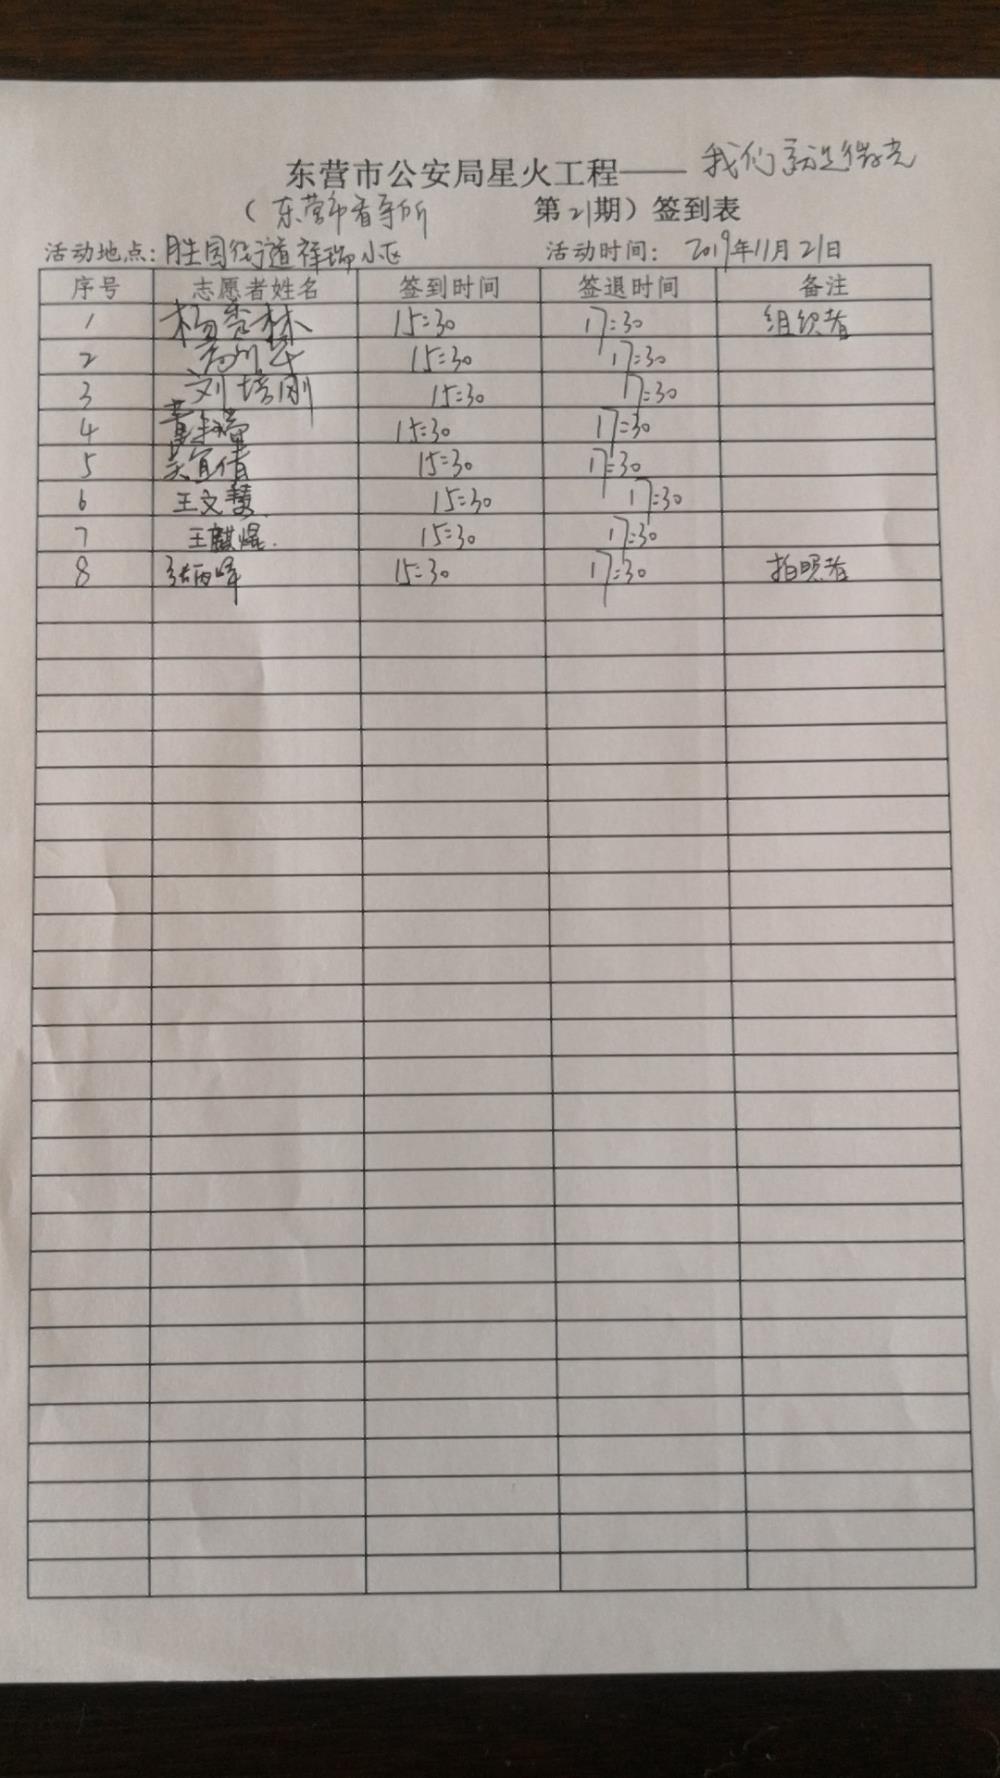 东营市公安局星火工程——我们就是微光
（东营市看守所 第21期）签到表
活动地点：胜园街道祥瑞小区 活动时间：2019年11月21日
序号 志愿者姓名 签到时间 签退时间 备注
1 杨秀林 15:30 17:30 组织者
2 15:30 17:30
3 刘培刚 15:30 17:30
4 董 15:30 17:30
5 吴宜倩 15:30 17:30
6 王文慧 15:30 17:30
7 王麒焜 15:30 17:30
8 张丙峰 15:30 17:30 拍照者